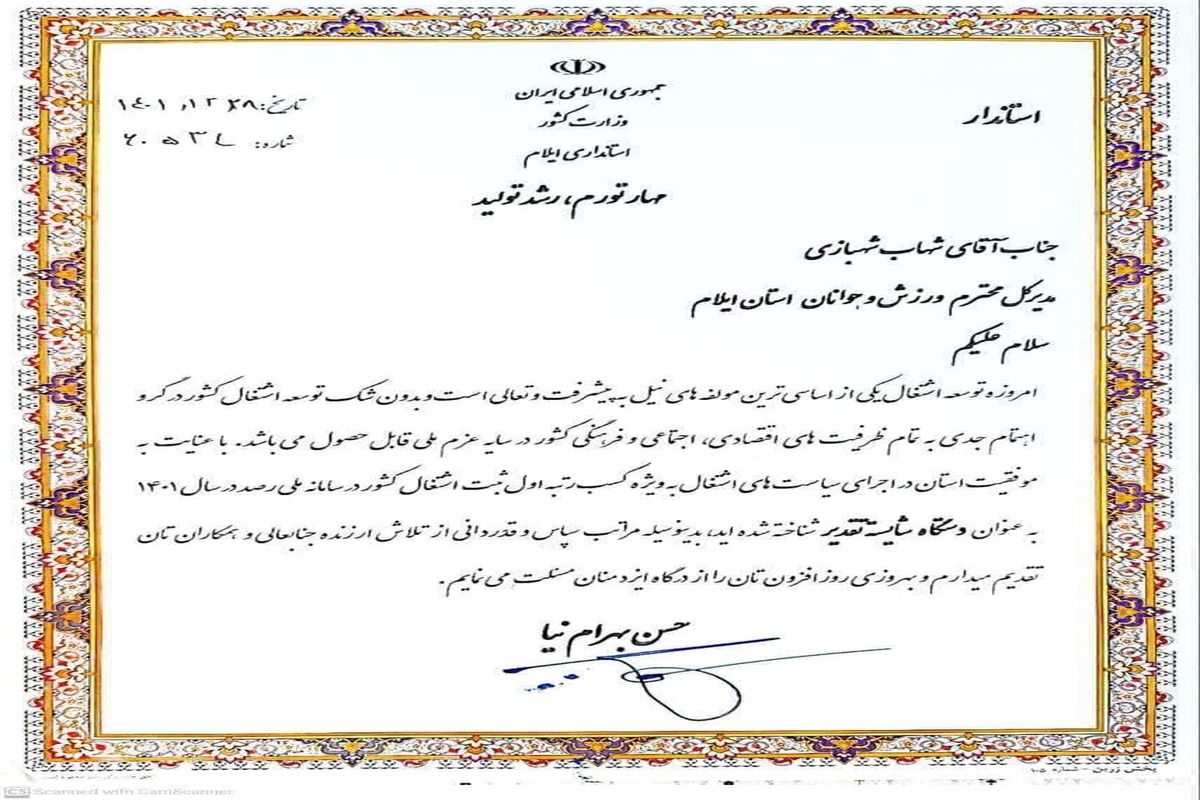 جمهوری اسلامی ایران
وزارت کشور
استانداری ایلام
مهار تورم، رشد تولید
استاندار
تاریخ: ۱۴۰۱/۱۲/۲۸
شماره:
جناب آقای شهاب شهبازی
مدیرکل محترم ورزش و جوانان استان ایلام
سلام علیکم
امروزه توسعه اشتغال یکی از اساسی ترین مولفه های نیل به پیشرفت و تعالی است و بدون شک توسعه اشتغال کشور در گرو
اهتمام جدی به تمام ظرفیت های اقتصادی، اجتماعی و فرهنگی کشور در سایه عزم ملی قابل حصول می باشد. با عنایت به
موفقیت استان در اجرای سیاست های اشتغال به ویژه کسب رتبه اول ثبت اشتغال کشور در سامانه ملی رصد در سال ۱۴۰۱
به عنوان دستگاه شایسته تقدیر شناخته شده اید، بدینوسیله مراتب سپاس و قدردانی از تلاش ارزنده جنابعالی و همکاران تان
تقدیم میدارم و بهروزی روز افزون تان را از درگاه ایزد منان مسئلت می نمایم.
حسن بهرام نیا
پخش زرین - شماره ۱۰۵
CS Scanned with CamScanner